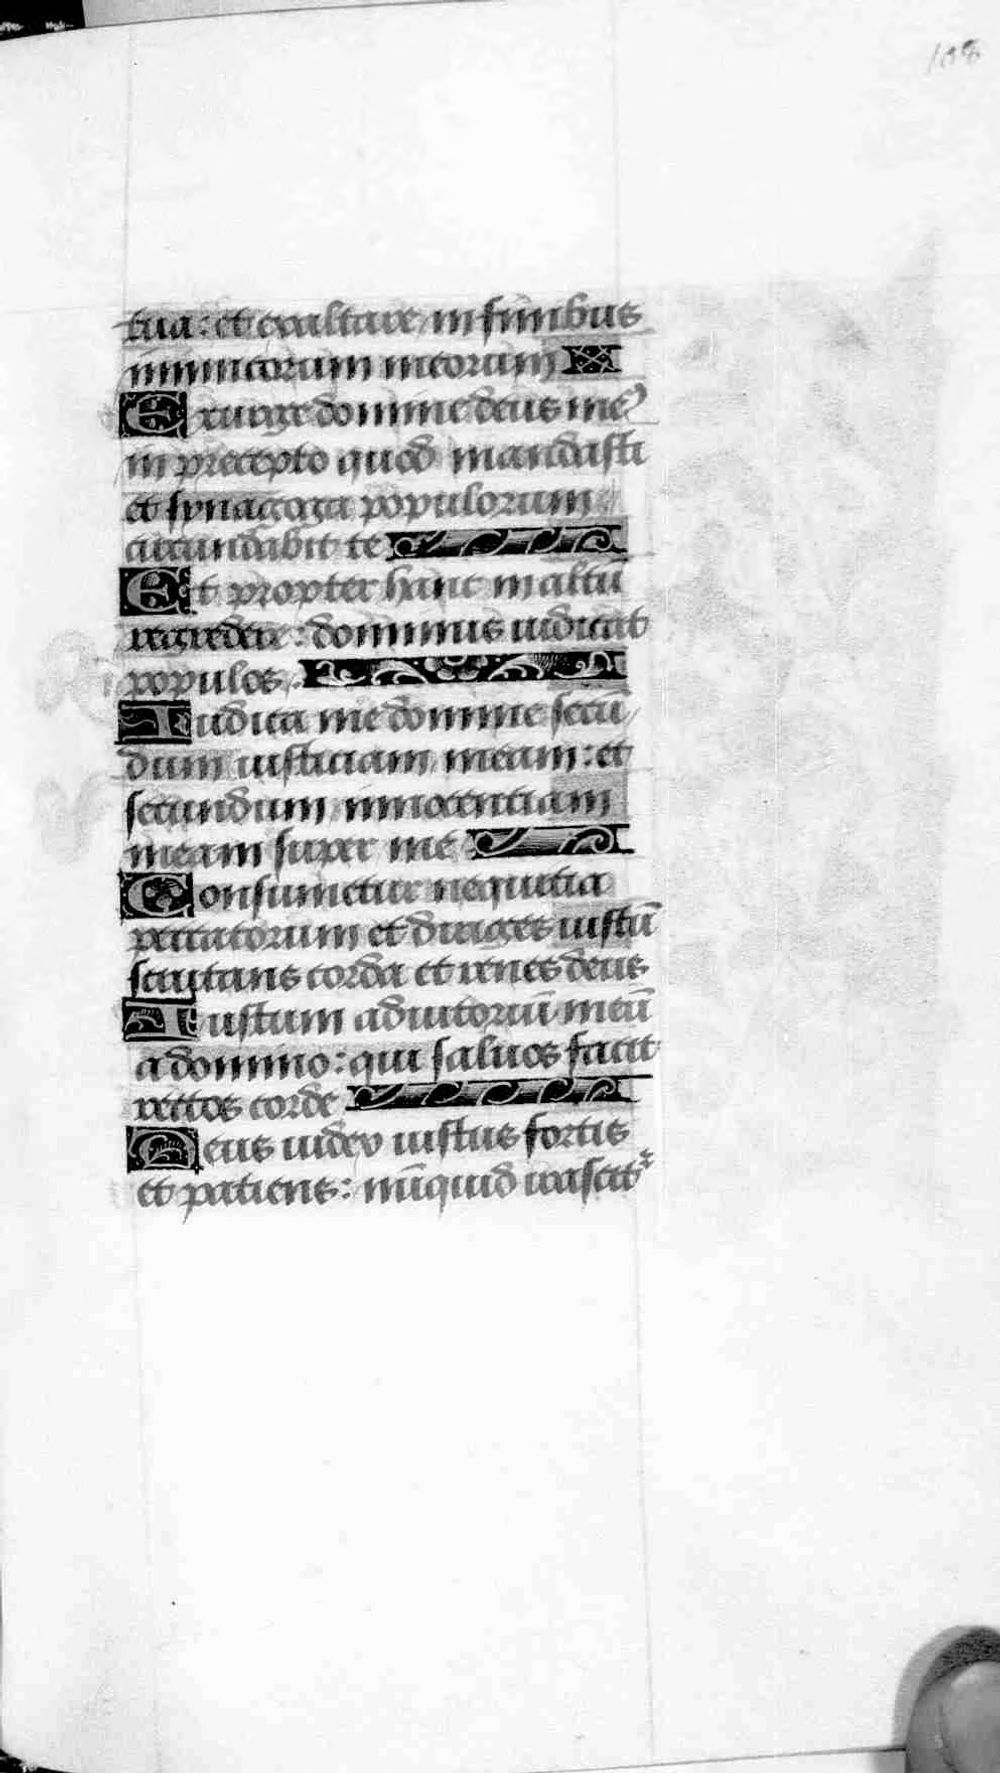 108
tua: et exaltare in finibus
inimicorum meorum
Exurge domine deus me⁹
in precepto quod mandasti
et synagoga populorum
circundabit te
Et propter hanc in altū
regredere: dominus iudicat
populos
Iudica me domine secū
dum iusticiam meam: et
secundum innocentiam
meam super me
Consumetur nequitia
peccatorum et diriges iustū
scrutans corda et renes deus
Iustum adiutoriū meū
a domino: qui saluos facit
rectos corde
Deus iudex iustus fortis
et patiens: nūquid irascit᷑